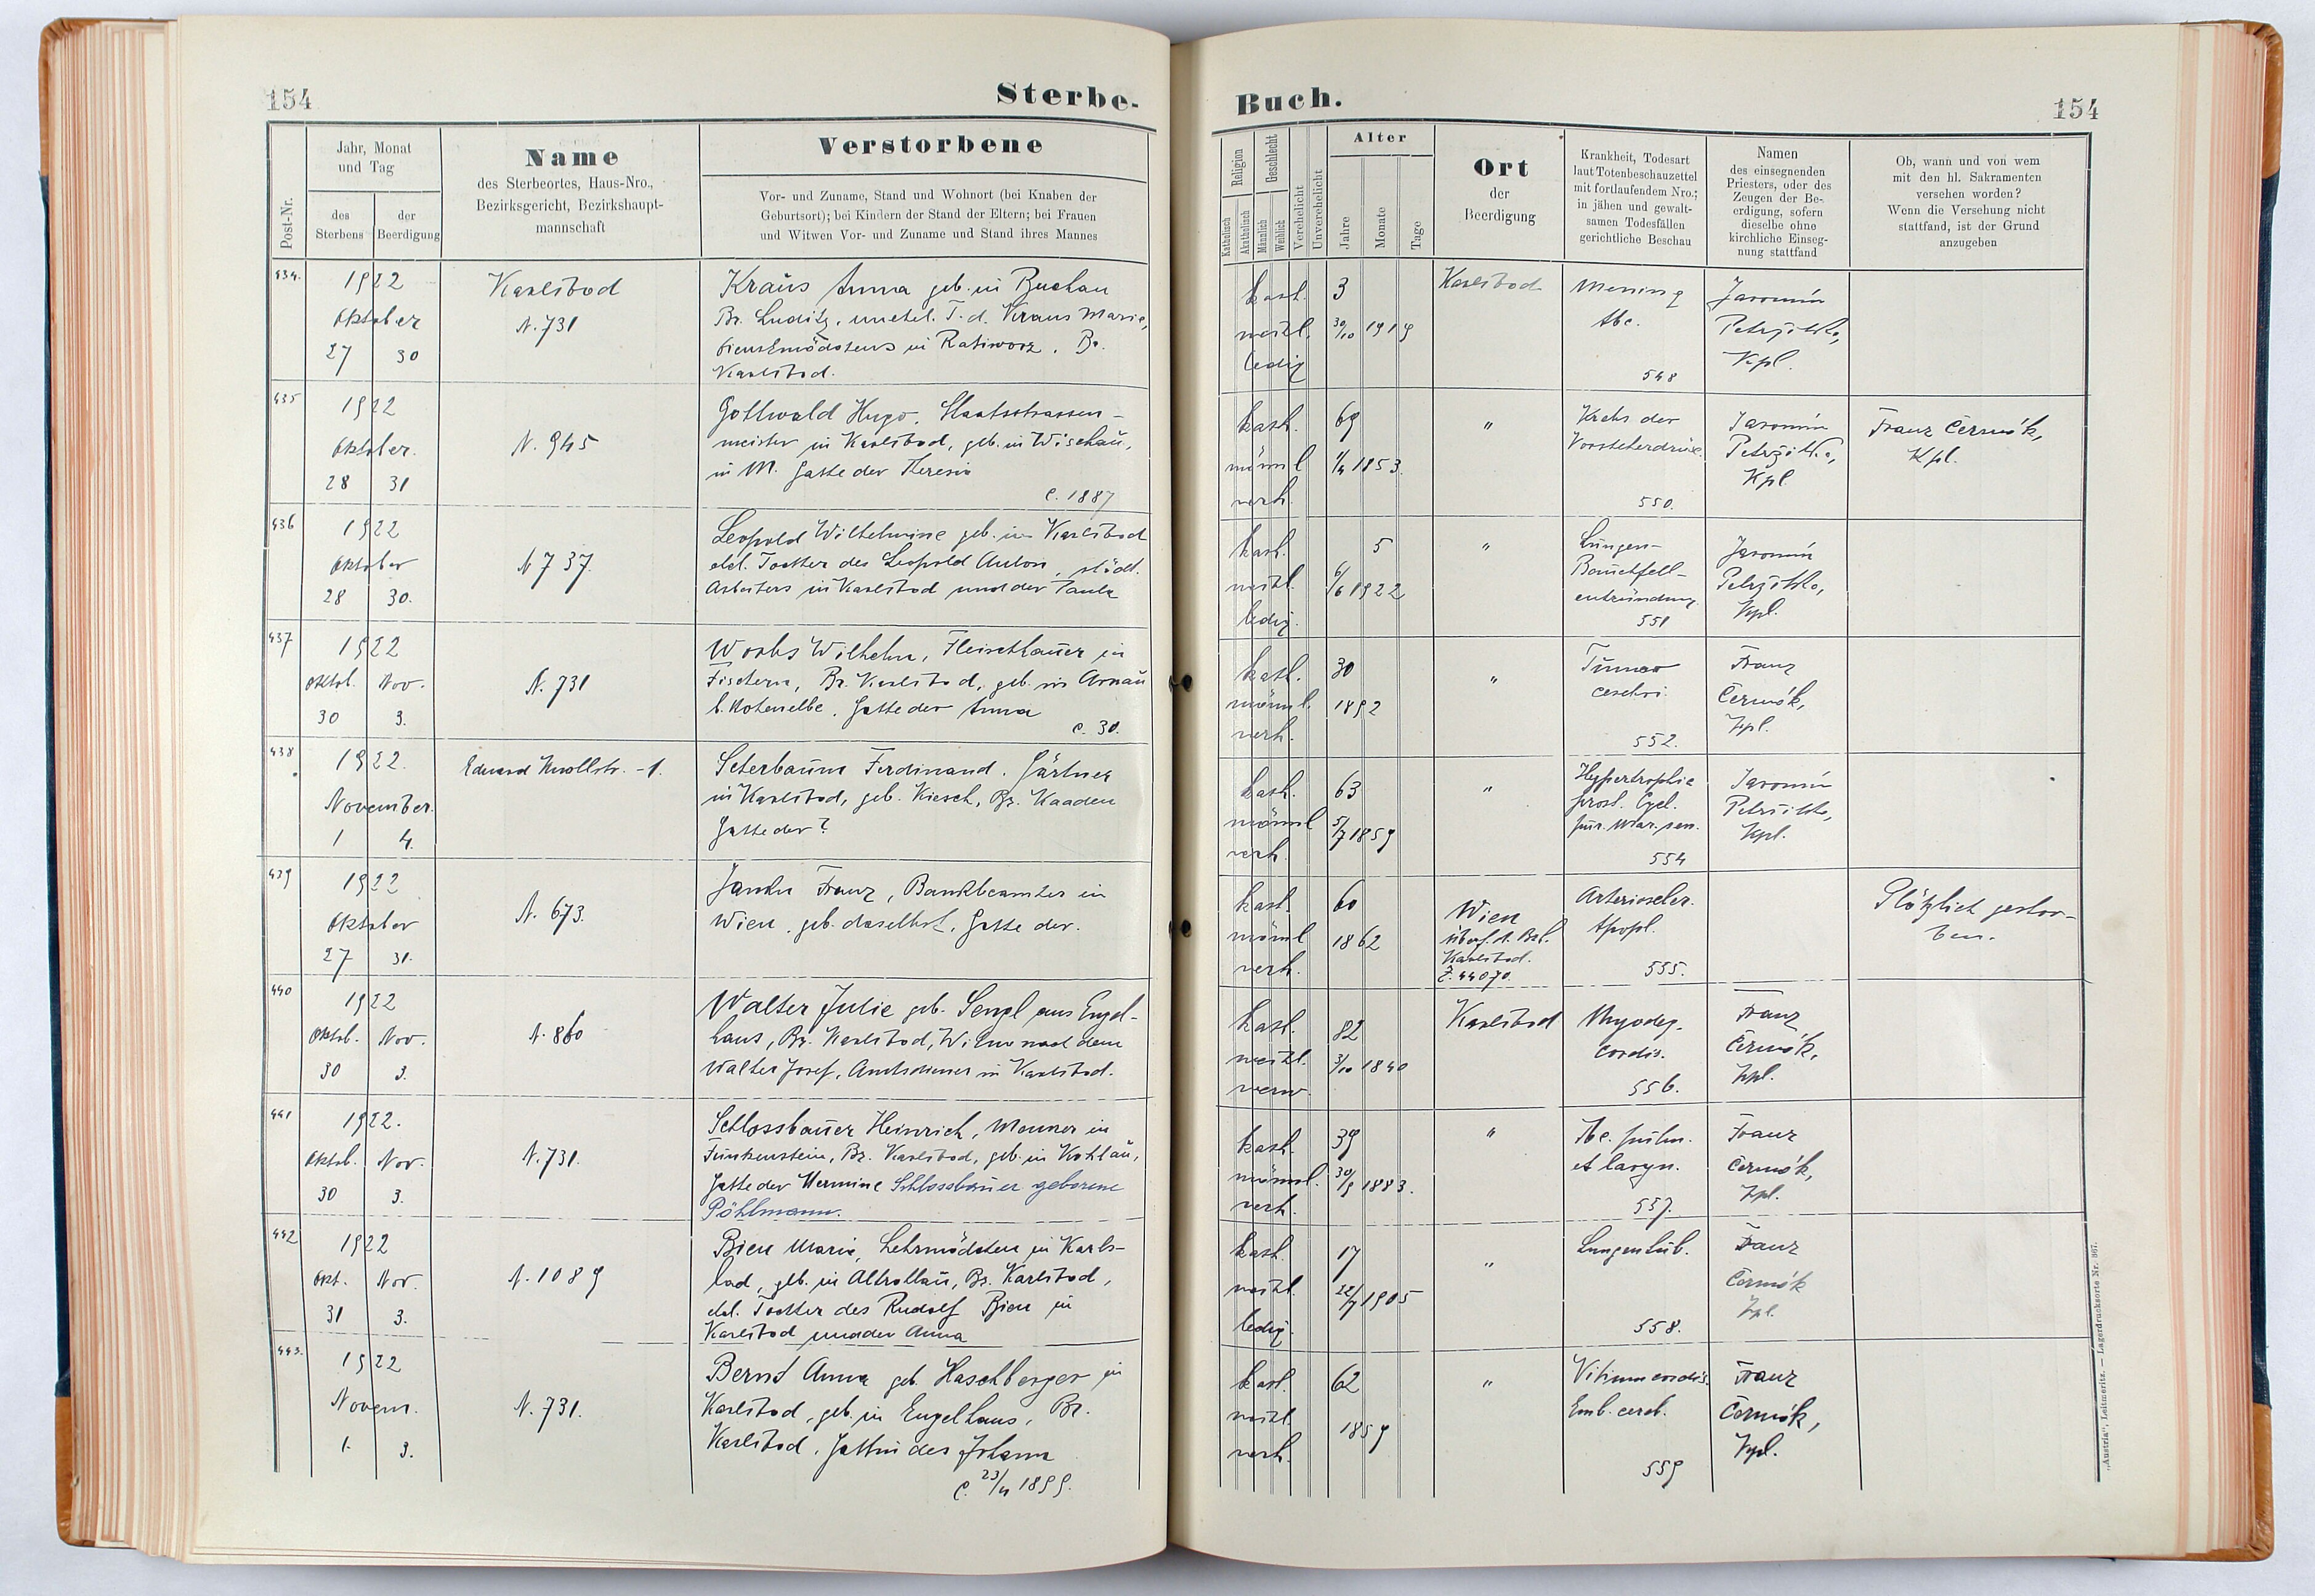 154
Sterbe-
Post-Nr.
Jahr, Monat
und Tag
des
Sterbens
der
Beerdigung
Name
des Sterbeortes, Haus-Nro.,
Bezirksgericht, Bezirkshaupt-
mannschaft
Verstorbene
Vor- und Zuname, Stand und Wohnort (bei Knaben der
Geburtsort); bei Kindern der Stand der Eltern; bei Frauen
und Witwen Vor- und Zuname und Stand ihres Mannes
434.
1922
Oktober
27 30
Karlsbad
N. 731
Kraus Anna geb. in Buchau
Bz. Luditz, unehel. T. d. Kraus Marie,
Dienstmädchens in Ratiworz, Bz.
Karlsbad.
435
1922
Oktober.
28 31
N. 945
Gottwald Hugo, Staatsstrassen-
meister in Karlsbad, geb. in Wischau,
in M. Gatte der Theresia
c. 1887
436
1922
Oktober
28 30.
N 737.
Leopold Wilhelmine geb. in Karlsbad
ehl. Tochter des Leopold Anton, städt.
Arbeiters in Karlsbad und der Paula
437
1922
Oktob. Nov.
30 3.
N. 731
Worbs Wilhelm, Fleischhauer in
Fischern, Bz. Karlsbad, geb. in Arnau
b. Hohenelbe. Gatte der Anna
c. 30.
438
1922.
November.
1 4.
Eduard Knollstr. - 1.
Scherbaum Ferdinand, Gärtner
in Karlsbad, geb. Kiesch, Bz. Kaaden
Gatte der ?
439
1922
Oktober
27 31.
N. 673.
Janku Franz, Bankbeamter in
Wien, geb. daselbst, Gatte der.
440
1922
Oktob. Nov.
30 3.
N. 860
Walter Julie geb. Sengl aus Engel-
haus, Bz. Karlsbad, Witwe nach dem
Walter Josef, Amtsdiener in Karlsbad.
441
1922.
Oktob. Nov.
30 3.
N. 731.
Schlossbauer Heinrich, Maurer in
Funkenstein, Bz. Karlsbad, geb. in Kohlau,
Gatte der Hermine Schlossbauer geborene
Pöhlmann.
442
1922
Okt. Nov.
31 3.
N. 1089
Bien Marie, Lehrmädchen in Karls-
bad, geb. in Altrohlau, Bz. Karlsbad,
ehl. Tochter des Rudolf Bien in
Karlsbad und der Anna
443.
1922
Novem.
1. 3.
N. 731.
Bernt Anna geb. Haschberger in
Karlsbad, geb. in Engelhaus, Bz.
Karlsbad. Gattin des Johann
c. 23/4 1899.
Buch.
154
Religion
Katholisch
Akatholisch
Geschlecht
Männlich
Weiblich
Verehelicht
Unverehelicht
Alter
Jahre
Monate
Tage
Ort
der
Beerdigung
Krankheit, Todesart
laut Totenbeschauzettel
mit fortlaufendem Nro.;
in jähen und gewalt-
samen Todesfällen
gerichtliche Beschau
Namen
des einsegnenden
Priesters, oder des
Zeugen der Be-
erdigung, sofern
dieselbe ohne
kirchliche Einseg-
nung stattfand
Ob, wann und von wem
mit den hl. Sakramenten
versehen worden?
Wenn die Versehung nicht
stattfand, ist der Grund
anzugeben
kath. 3
weibl. 30/10 1919
ledig
Karlsbad
Mening
tbc.
548
Jaromin
Petržilka,
Kpl.
kath. 69
männl 1/4 1853.
verh.
"
Krebs der
Vorsteherdrüse
550.
Jaromin
Petržilka,
Kpl.
Franz Čermák,
Kpl.
kath. 5
weibl. 6/6 1922
ledig.
"
Lungen-
Bauchfell-
entzündung.
551
Jaromin
Petržilka,
Kpl.
kath. 30
männl. 1892
verh.
"
Tumor
cerebri.
552.
Franz
Čermák,
Kpl.
kath. 63
männl 5/7 1859
verh.
"
Hypertrophie
prost. Cyst.
pur. Mar. sen.
554
Jaromin
Petržilka,
Kpl.
kath. 60
männl 1862
verh.
Wien
Karlsbad.
Z. 44070.
Arterioscler.
Apopl.
555.
Plötzlich gestor-
ben.
kath. 82
weibl. 3/10 1840
verw.
Karlsbad
Myodeg.
cordis.
556.
Franz
Čermák,
Kpl.
kath. 39
männl. 30/9 1883.
verh.
"
Tbc. pulm.
et laryn.
557.
Franz
Čermák,
Kpl.
kath. 17
weibl 22/7 1905
ledig.
"
Lungentub.
558.
Franz
Čermák
Kpl.
kath. 62
weibl. 1859
verh.
"
Vitium cordis.
Emb. cereb.
559
Franz
Čermák,
Kpl.
„Austria“, Leitmeritz. — Lagerdrucksorte Nr. 867.